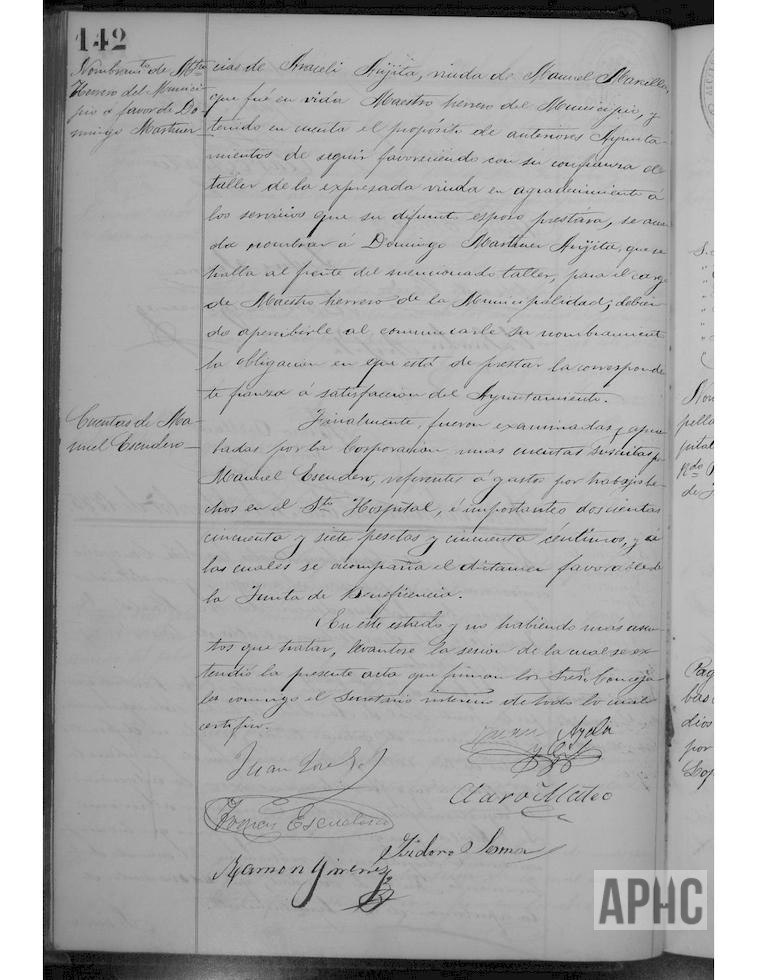 142
Nombramto de Mtro
Herrero del Munici-
pio á favor de Do-
mingo Martinez
cias de Araceli Arjita, viuda de Manuel
que fué en vida Maestro herrero del Municipio, y
teniendo en cuenta el propósito de anteriores Ayunta-
mientos de seguir favoreciendo con su confianza el
taller de la expresada viuda en agradecimiento á
los servicios que su difunto esposo prestára, se acuer
da nombrar á Domingo Martinez Arjita, que se
halla al frente del mencionado taller, para el cargo
de Maestro herrero de la Municipalidad; debien
do apercibirle al comunicarle su nombramiento
la obligacion en que está de prestar la correspondien
te fianza á satisfaccion del Ayuntamiento.
Cuentas de Ma-
nuel Escudero
Finalmente, fueron examinadas y apro
badas por la Corporacion unas cuentas suscritas por
Manuel Escudero, referentes á gastos por trabajos he-
chos en el Sto Hospital, é importantes doscientas
cincuenta y siete pesetas y cincuenta céntimos, y á
las cuales se acompaña el dictamen favorable de
la Junta de Beneficencia.
En este estado y no habiendo más asun-
tos que tratar, levantóse la sesion de la cual se ex-
tendió la presente acta que firman los Sres. Conceja-
les conmigo el Secretario interino de todo lo cual
certifico.
Juan José
Ayala
y Gil
Claro Mateo
Tomás Escudero
Isidoro
Ramon Gimenez
APHC